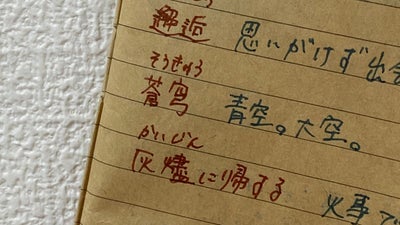 邂逅 思いがけず出会
そうきゅう
蒼穹 青空。大空。
かいじん
灰燼に帰する 火事で